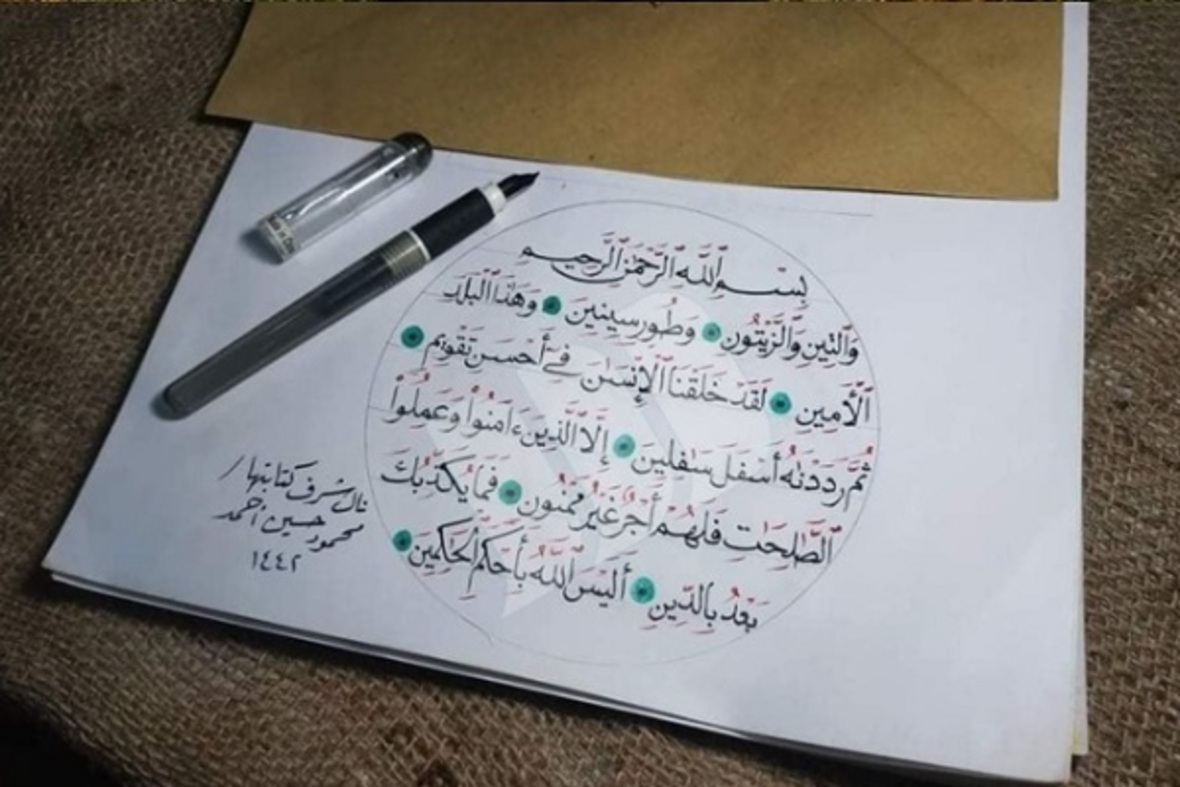 بِسْمِ ٱللَّهِ ٱلرَّحْمَٰنِ ٱلرَّحِيمِ
وَٱلتِّينِ وَٱلزَّيْتُونِ وَطُورِ سِينِينَ وَهَٰذَا ٱلْبَلَدِ
ٱلْأَمِينِ لَقَدْ خَلَقْنَا ٱلْإِنسَٰنَ فِىٓ أَحْسَنِ تَقْوِيمٍ
ثُمَّ رَدَدْنَٰهُ أَسْفَلَ سَٰفِلِينَ إِلَّا ٱلَّذِينَ ءَامَنُوا۟ وَعَمِلُوا۟
ٱلصَّٰلِحَٰتِ فَلَهُمْ أَجْرٌ غَيْرُ مَمْنُونٍ فَمَا يُكَذِّبُكَ
بَعْدُ بِٱلدِّينِ أَلَيْسَ ٱللَّهُ بِأَحْكَمِ ٱلْحَٰكِمِينَ
نال شرف كتابتها /
محمود حسين أحمد
١٤٤٢